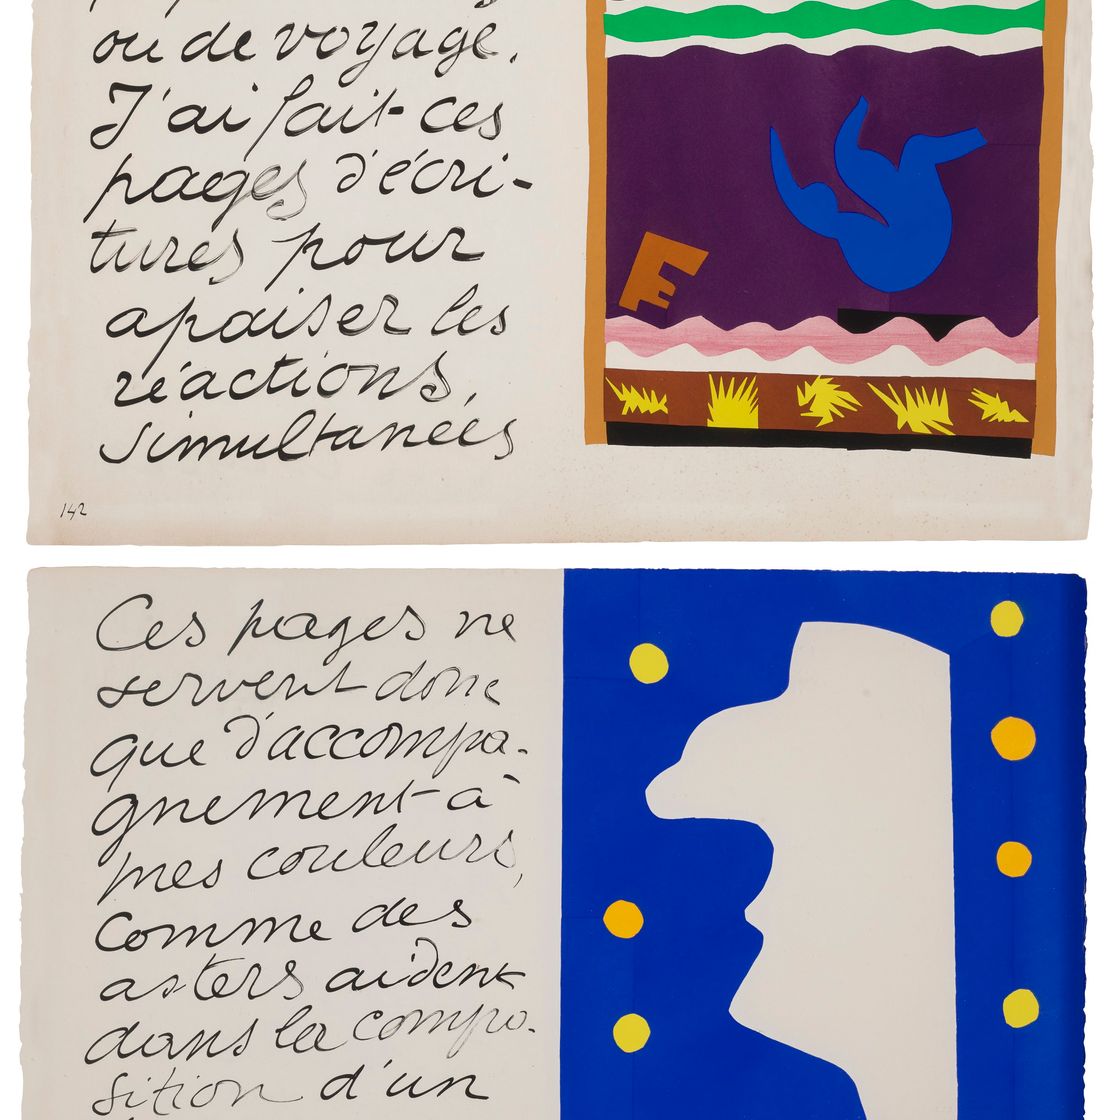 ou de voyage.
J'ai fait ces
pages d'écri-
tures pour
apaiser les
réactions
simultanées
142
Ces pages ne
servent donc
que d'accompa-
gnement à
mes couleurs,
comme des
asters aident
dans la compo-
sition d'un